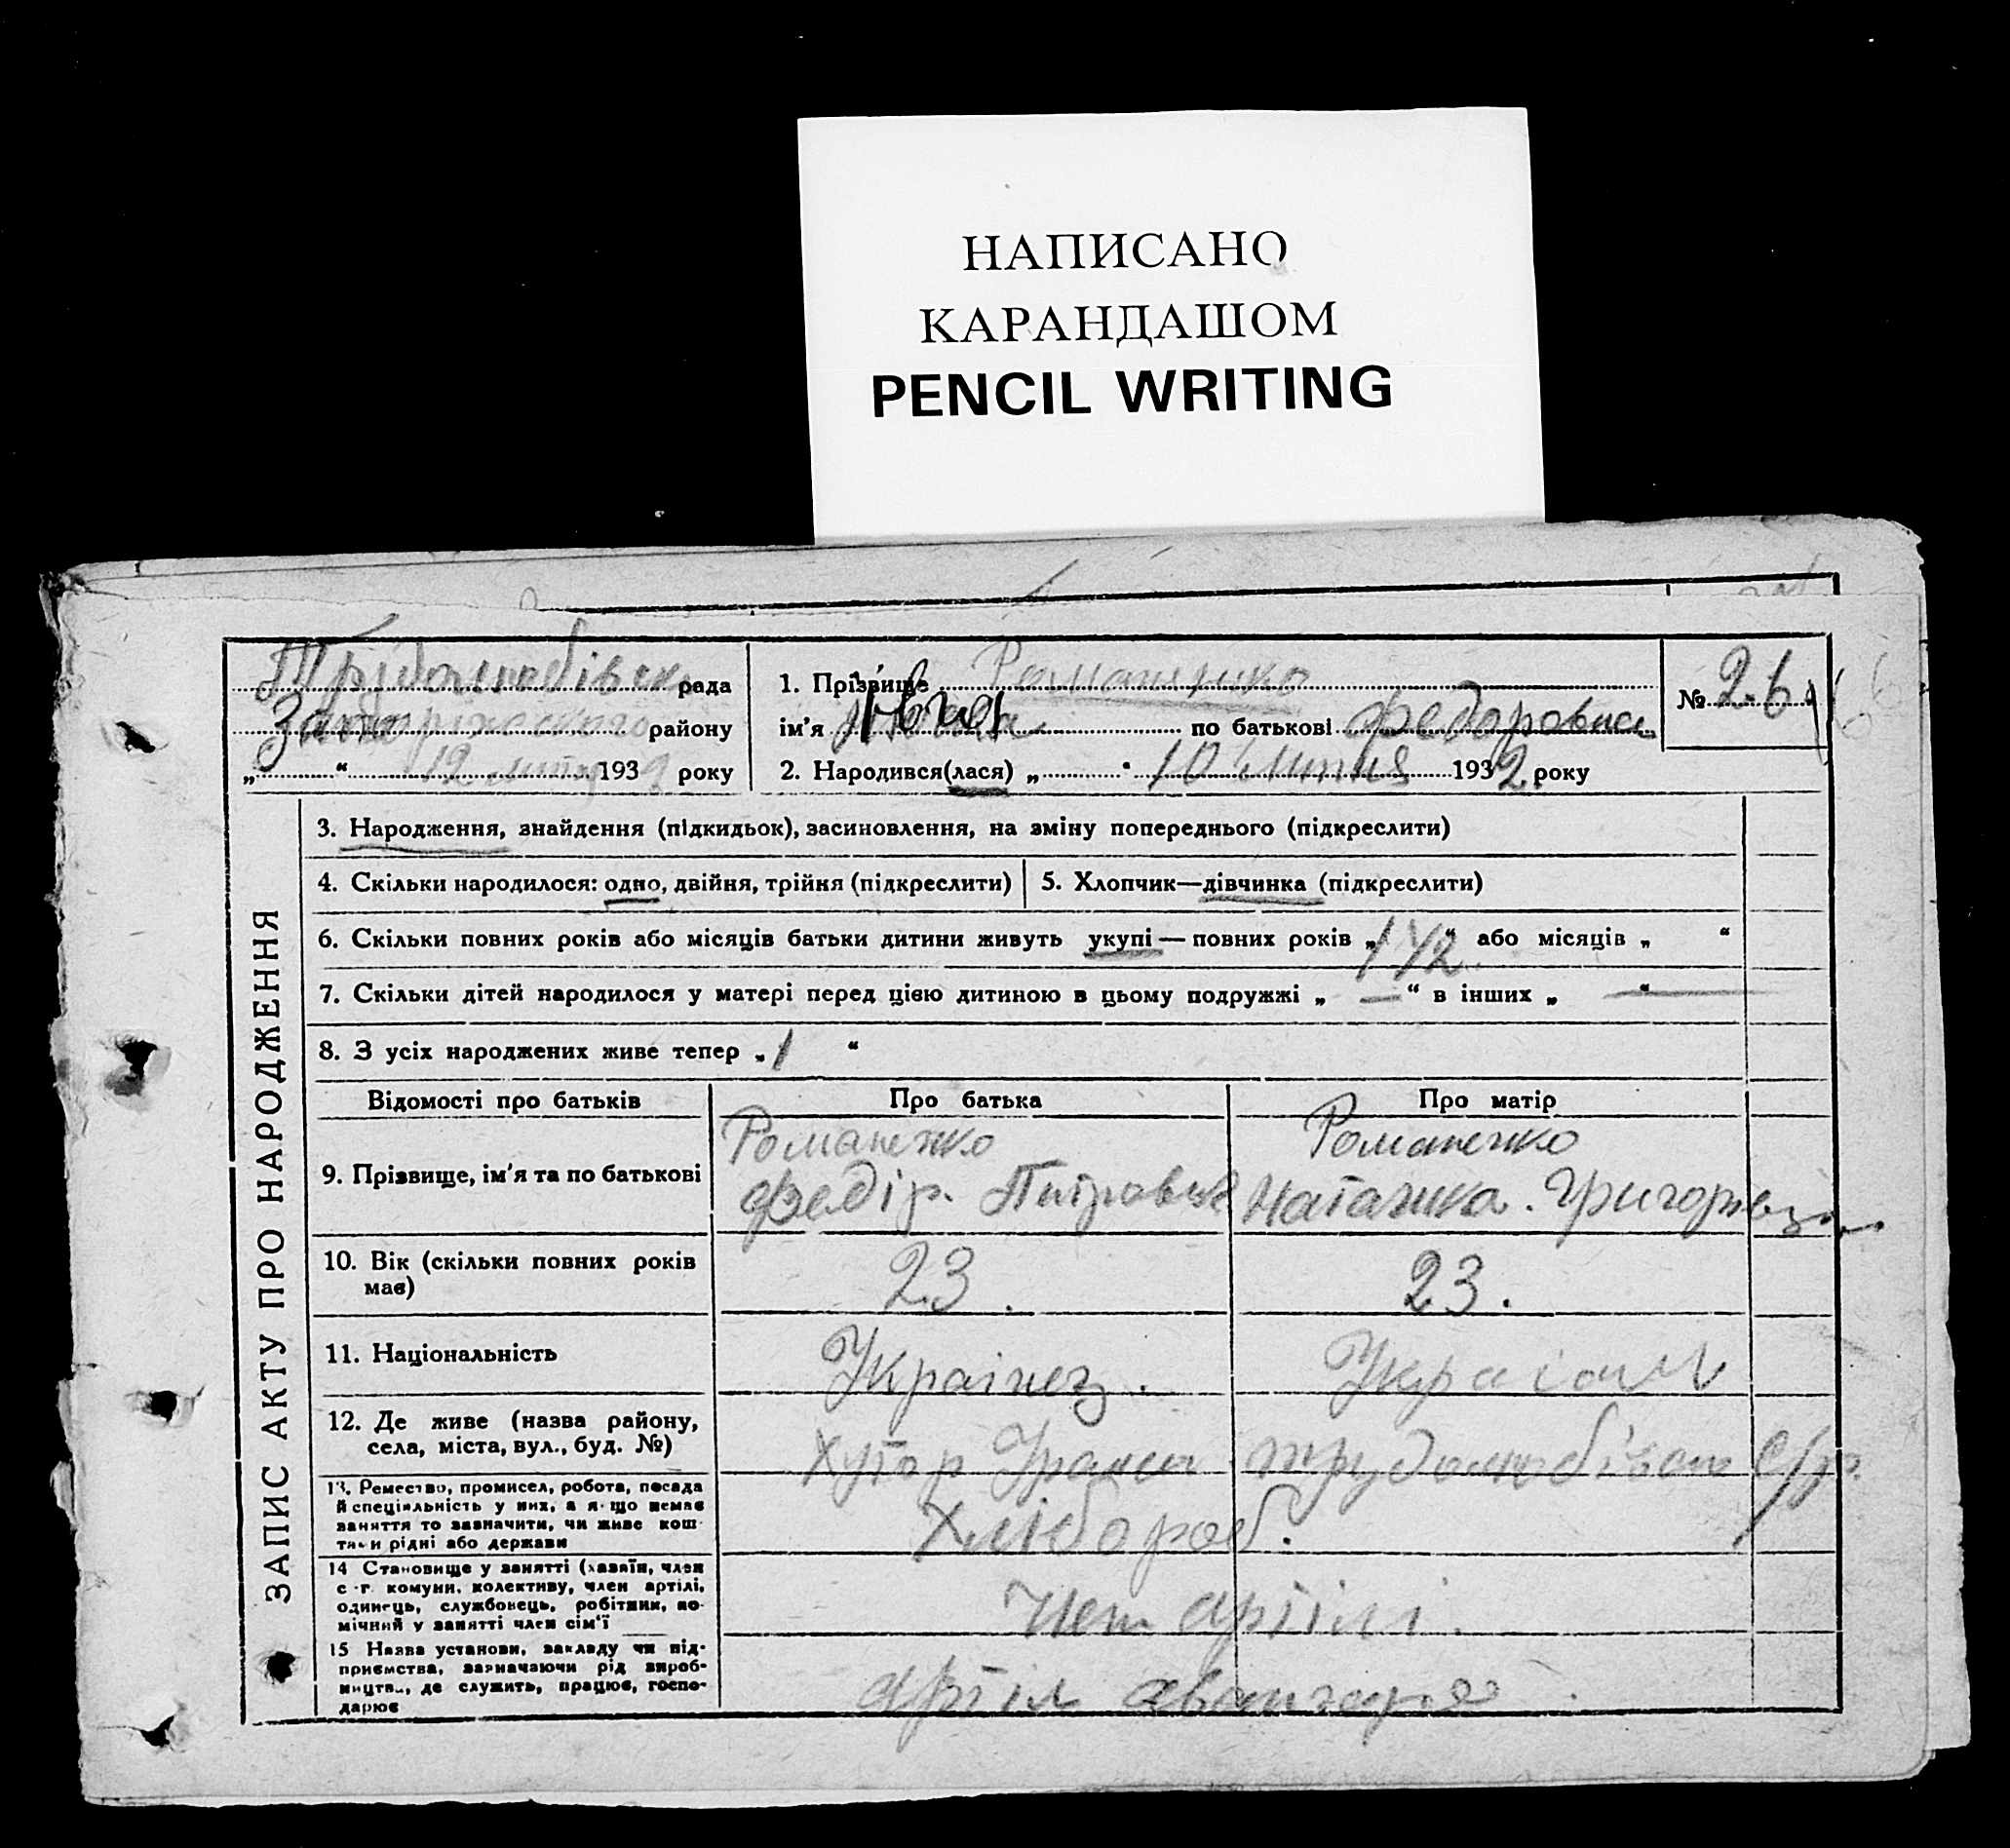 НАПИСАНО
КАРАНДАШОМ
PENCIL WRITING
рада
1. Прізвище Романенко
№ 26
Запорізького району
ім'я по батькові Федоровна
„ “ 193 року
2. Народився(лася) „ “ 10 липня 1932 року
ЗАПИС АКТУ ПРО НАРОДЖЕННЯ
3. Народження, знайдення (підкидьок), засиновлення, на зміну попереднього (підкреслити)
4. Скільки народилося: одно, двійня, трійня (підкреслити)
5. Хлопчик—дівчинка (підкреслити)
6. Скільки повних років або місяців батьки дитини живуть укупі — повних років „1 1/2“ або місяців „ “
7. Скільки дітей народилося у матері перед цією дитиною в цьому подружжі „ — “ в інших „ — “
8. З усіх народжених живе тепер „1 “
Відомості про батьків
Про батька
Про матір
9. Прізвище, ім'я та по батькові
Романенко
Федір.
Романенко
Наташка.
10. Вік (скільки повних років
має)
23.
23.
11. Національність
Українец.
12. Де живе (назва району,
села, міста, вул., буд. №)
Хутор
13. Ремество, промисел, робота, посада
й спеціяльність у них, а якщо немає
заняття то зазначити, чи живе кош-
тами рідні або держави
Хлібороб.
14 Становище у занятті (хазяїн, член
с.-г. комуни, колективу, член артілі,
одинець, службовець, робітник, по-
мічний у занятті член сім'ї
Член артілі.
15 Назва установи, закладу чи під-
приємства, зазначаючи рід вироб-
ництва, де служить, працює, госпо-
дарює